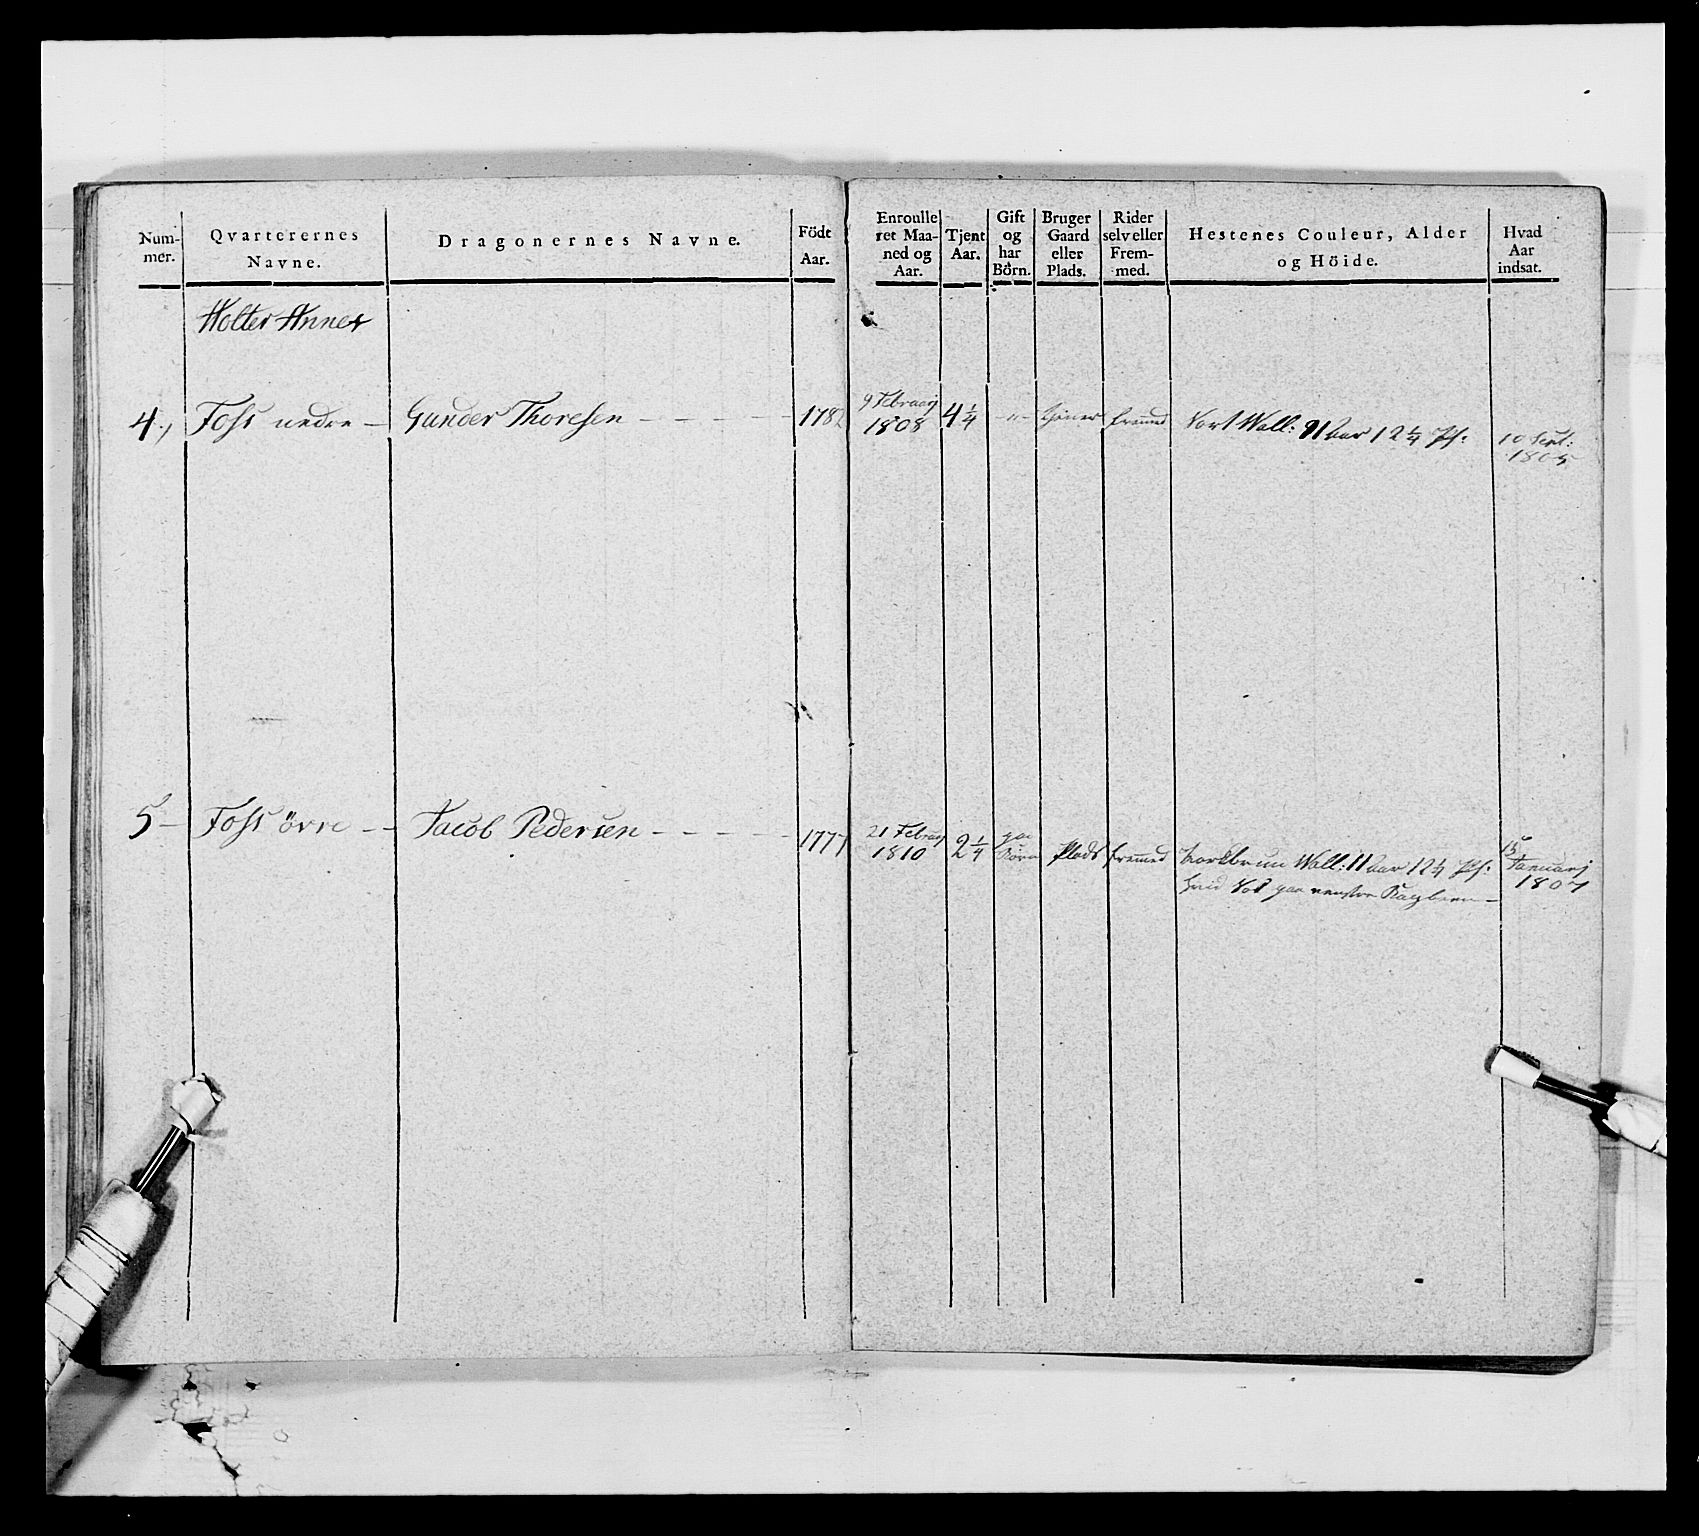 Num-
mer.
Qvarterernes
Navne.
Dragonernes Navne.
Födt
Aar.
Enroulle
ret Maa-
ned og
Aar.
Tjent
Aar.
Gift
og
har
Börn.
Bruger
Gaard
eller
Plads.
Rider
selv eller
Frem-
med.
Hestenes Couleur, Alder
og Höide.
Hvad
Aar
indsat.
Holter Annex
4
Foss nedre –
Gunder Thoresen – – – –
1782
9 Februarj
1808
4 1/4
– " –
tjener
fremmed
Sort Wall: 11 Aar 12 1/4 Pf:
10 Sept:
1805
5 –
Foss övre – –
Jacob Pedersen – – – –
1777
21 Februarj
1810
2 1/4
Börn
Plads
fremmed
Wall: 11 Aar 12 1/4 Pf:
hvid paa venstre Bagbeen –
15
Januarj
1807